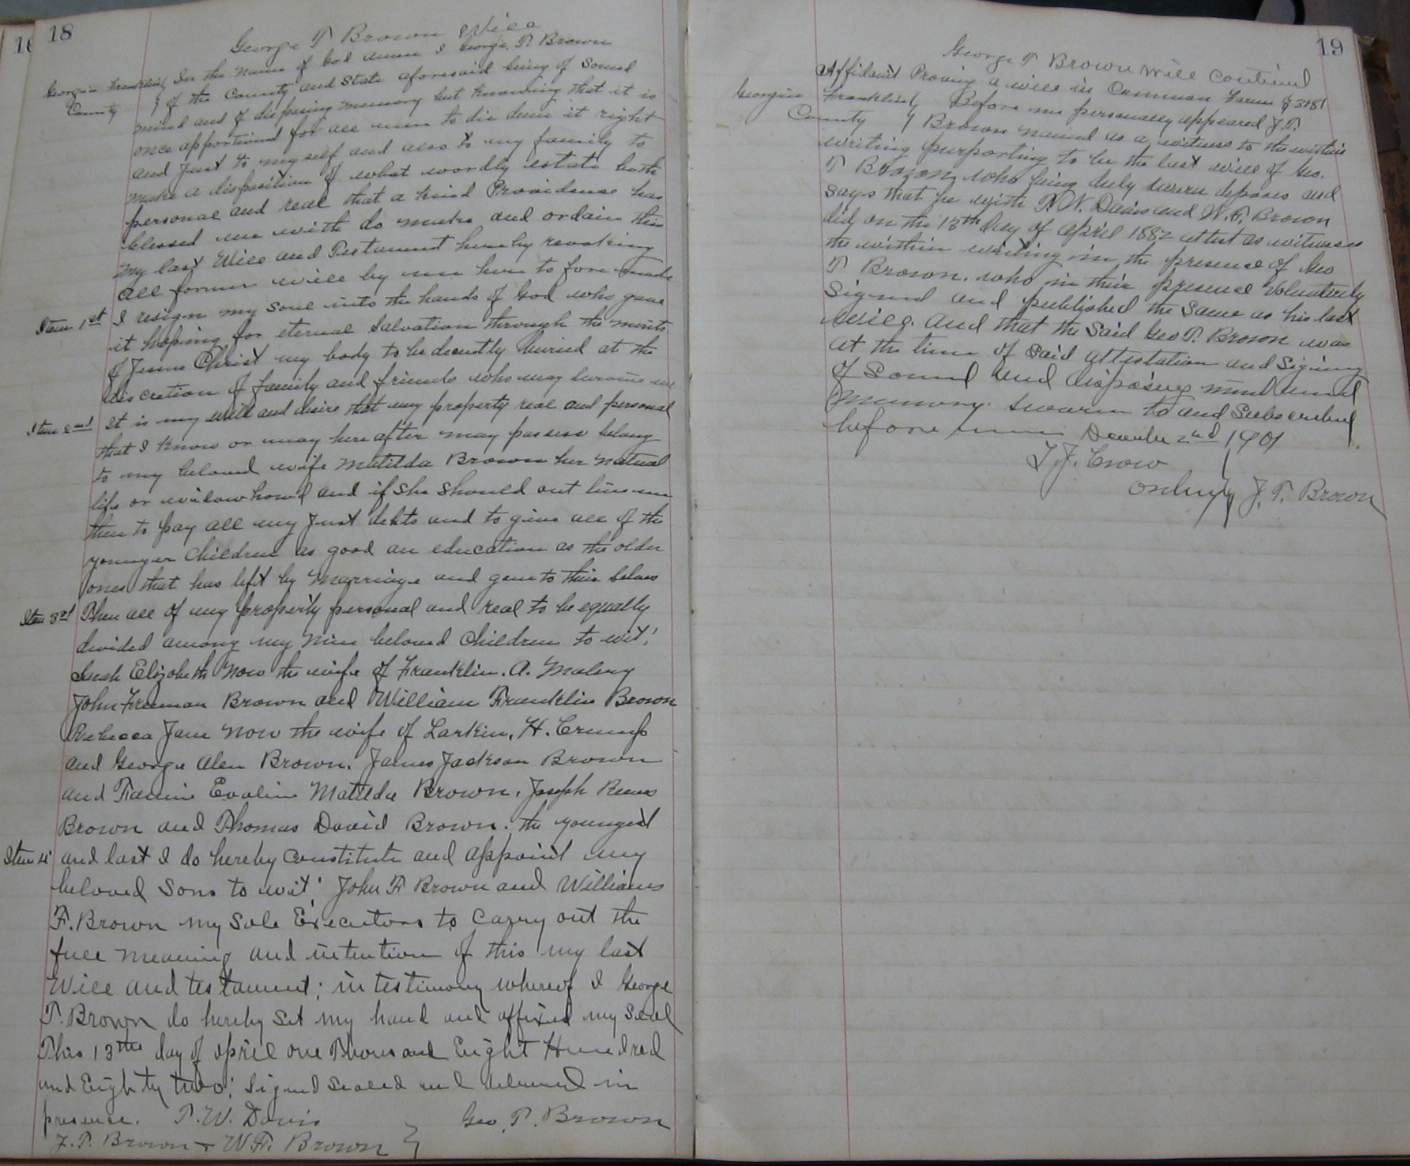 18
George T Brown Will
Georgia Franklin County } In the name of God amen I George T. Brown
of the County and State aforesaid being of Sound
mind and of disposing memory but knowing that it is
once apportioned for all men to die deem it right
and Just to my self and also to my family to
make a disposition of what wordly estate both
personal and real that a kind Providence has
blessed me with do make and ordain this
my last Will and Testament hereby revoking
all former will by me here to fore made
Item 1st I resign my soul into the hands of God who gave
it hoping for eternal Salvation through the merits
of Jesus Christ my body to be decently buried at the
discretion of family and friends who may survive me
Item 2nd It is my will and desire that my property real and personal
that I know or may here after may possess belong
to my beloved wife Matilda Brown her natural
life or widowhowd and if she should out live me
then to pay all my Just debts and to give all of the
younger children as good an education as the older
ones that has left by Marriage and gone to their
Item 3rd Then all of my property personal and real to be equally
divided among my nine beloved children to wit:
Elizabeth Now the wife of Franklin. A.
John Freeman Brown and William Franklin Brown
Rebecca Jane now the wife of Larkin. H. Crump
and George Alen Brown. James Jackson Brown
and Evaline Matilda Brown. Joseph
Brown and Thomas David Brown. the youngest
Item 4 and last I do hereby constitute and appoint my
beloved Sons to wit: John F Brown and William
F. Brown my Sole Executors to carry out the
full meaning and intention of this my last
Will and testament; in testimony whereof I George
T. Brown do hereby set my hand and affixed my Seal
This 13th day of April one Thousand Eight Hundred
and Eighty two: Signed Sealed and delivered in
presence. T. W. Davis Geo. T. Brown
J. T. Brown + W F. Brown }
19
George T Brown Will Contiued
Affidavit Proving a will in Common Form § 3281
Georgia Franklin County } Before me personally appeared J. T.
Brown named as a witness to the within
writing purporting to be the last will of Geo.
T Brown, who being duly sworn deposes and
says that he with Davis and W. F. Brown
did on the 13th day of April 1882 attest as witnesses
the within writing in the presence of Geo
T Brown. who in their presence voluntarily
Signed and published the same as his last
Will. and that the said Geo T. Brown was
at the time of said attestation and signing
of sound and disposing mind and
memory. Sworn to and Subscribed
before me December 2nd 1901
T. J. Crow
Ordinary J. T. Brown